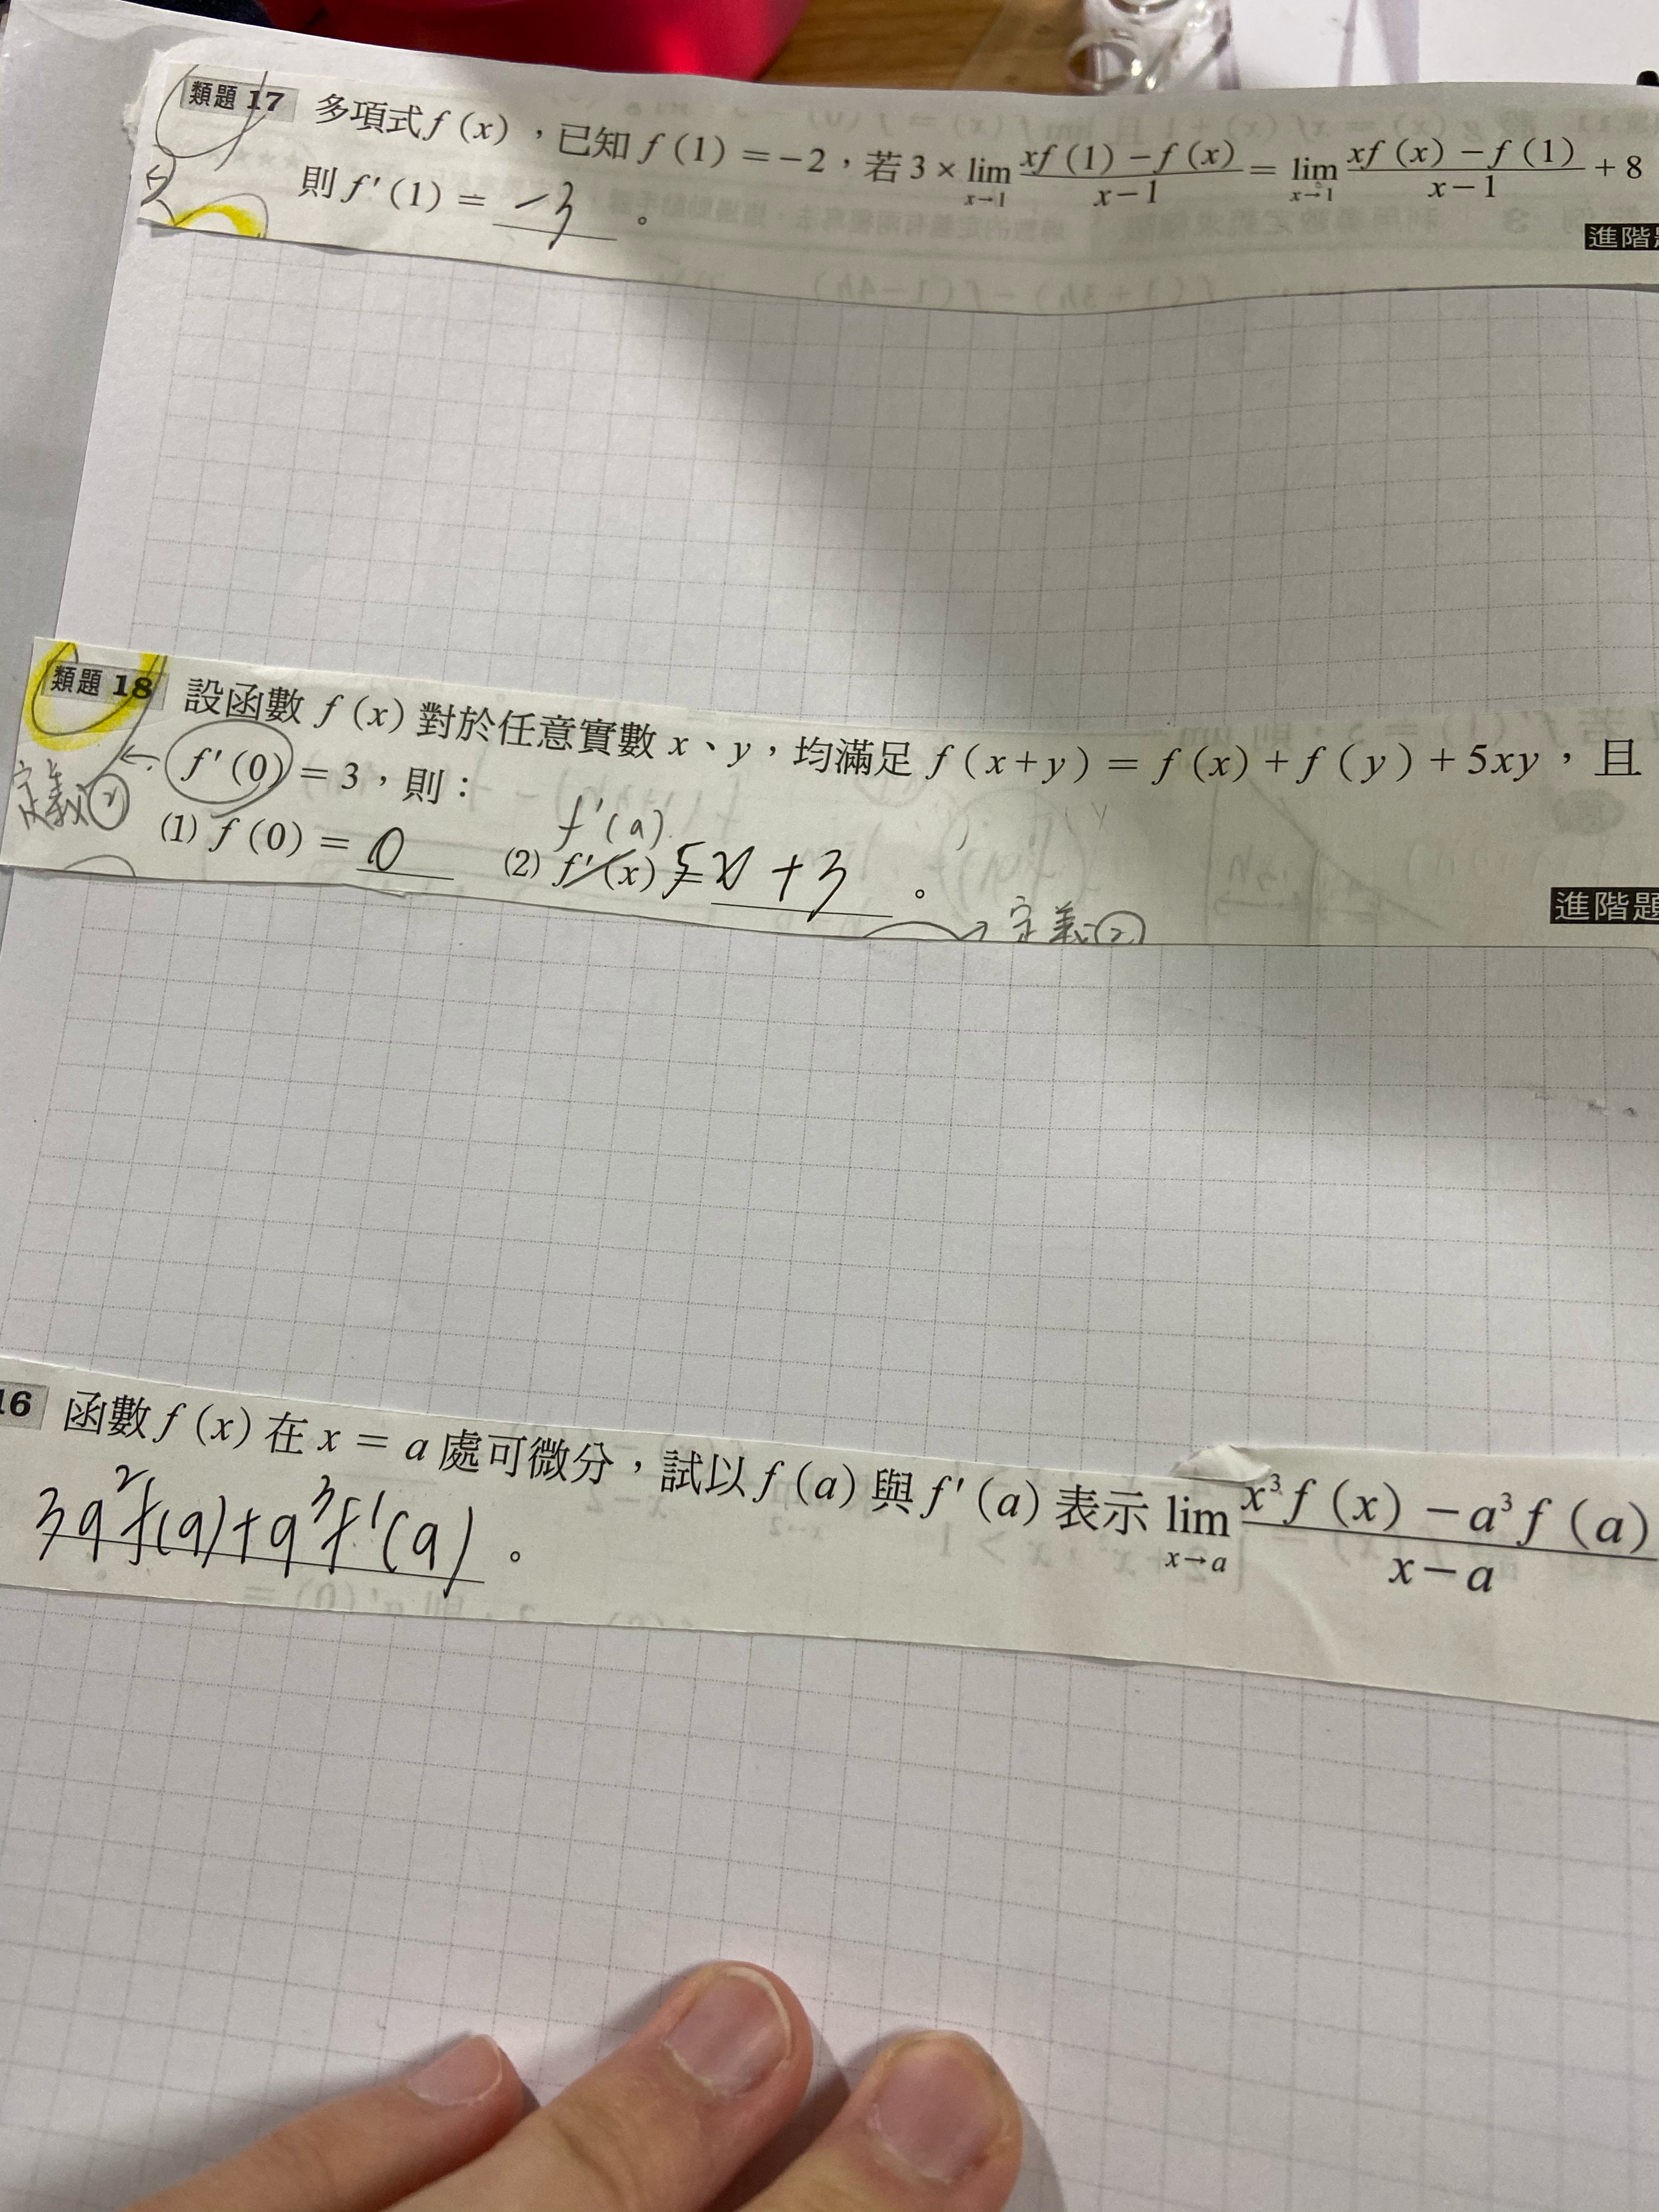 類題 17 多項式 f (x)，已知 f (1) = −2，若 3 × lim x→1 xf (1) − f (x) / x − 1 = lim x→1 xf (x) − f (1) / x − 1 + 8
則 f′ (1) = −3 。
進階
類題 18 設函數 f (x) 對於任意實數 x、y，均滿足 f (x+y) = f (x) + f (y) + 5xy，且
← f′ (0) = 3，則：
定義②
f′(a)
(1) f (0) = 0 (2) f′ (x) = 5x + 3 。
→ 定義②
進階題
16 函數 f (x) 在 x = a 處可微分，試以 f (a) 與 f′ (a) 表示 lim x→a x³ f (x) − a³ f (a) / x − a
3a²f(a)+a³f′(a) 。